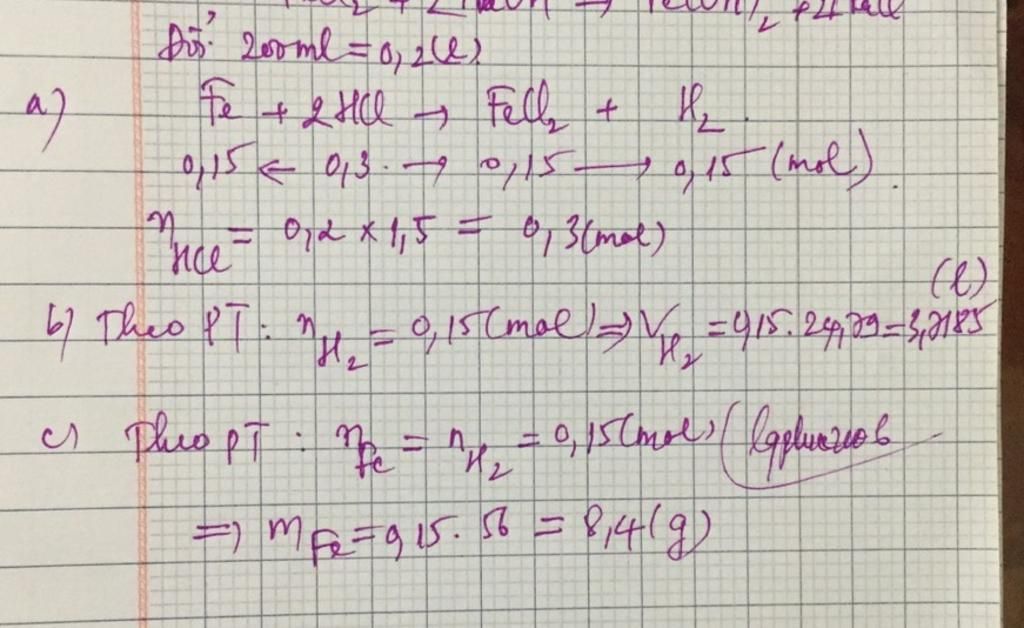 FeCl₂ + 2NaOH → Fe(OH)₂ + 2NaCl
Đổi: 200ml = 0,2(l)
a) Fe + 2HCl → FeCl₂ + H₂.
0,15 ← 0,3. → 0,15 → 0,15 (mol).
n_HCl = 0,2 × 1,5 = 0,3(mol)
b) Theo PT: n_H₂ = 0,15(mol) ⇒ V_H₂ = 0,15. 24,79 = 3,7185 (l)
c) Theo PT: n_Fe = n_H₂ = 0,15(mol)
⇒ m_Fe = 0,15. 56 = 8,4(g)